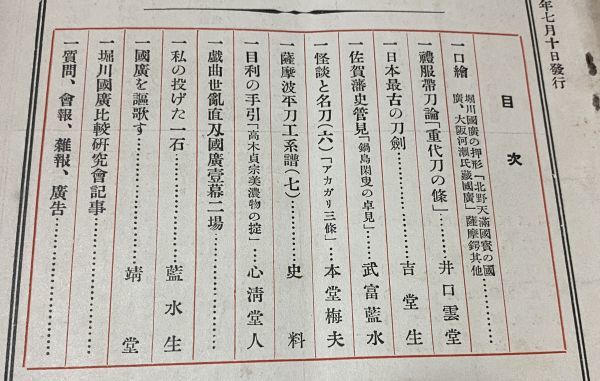 年七月十日發行
目次
一口繪 堀川國廣の押形「北野天滿國寶の國
廣、大阪河瀨氏藏國廣」薩摩鍔其他
一禮服帶刀論「重代刀の條」 井口雲堂
一日本最古の刀劍 吉堂生
一佐賀藩史管見「鍋島閑叟の卓見」 武富藍水
一怪談と名刀(六)「アカガリ三條」 本堂梅夫
一薩摩波平刀工系譜(七) 史料
一目利の手引「高木貞宗美濃物の掟」 心淸堂人
一戲曲世亂直刄國廣壹幕二場
一私の投げた一石 藍水生
一國廣を謳歌す 靖堂
一堀川國廣比較硏究會記事
一質問、會報、雜報、廣告